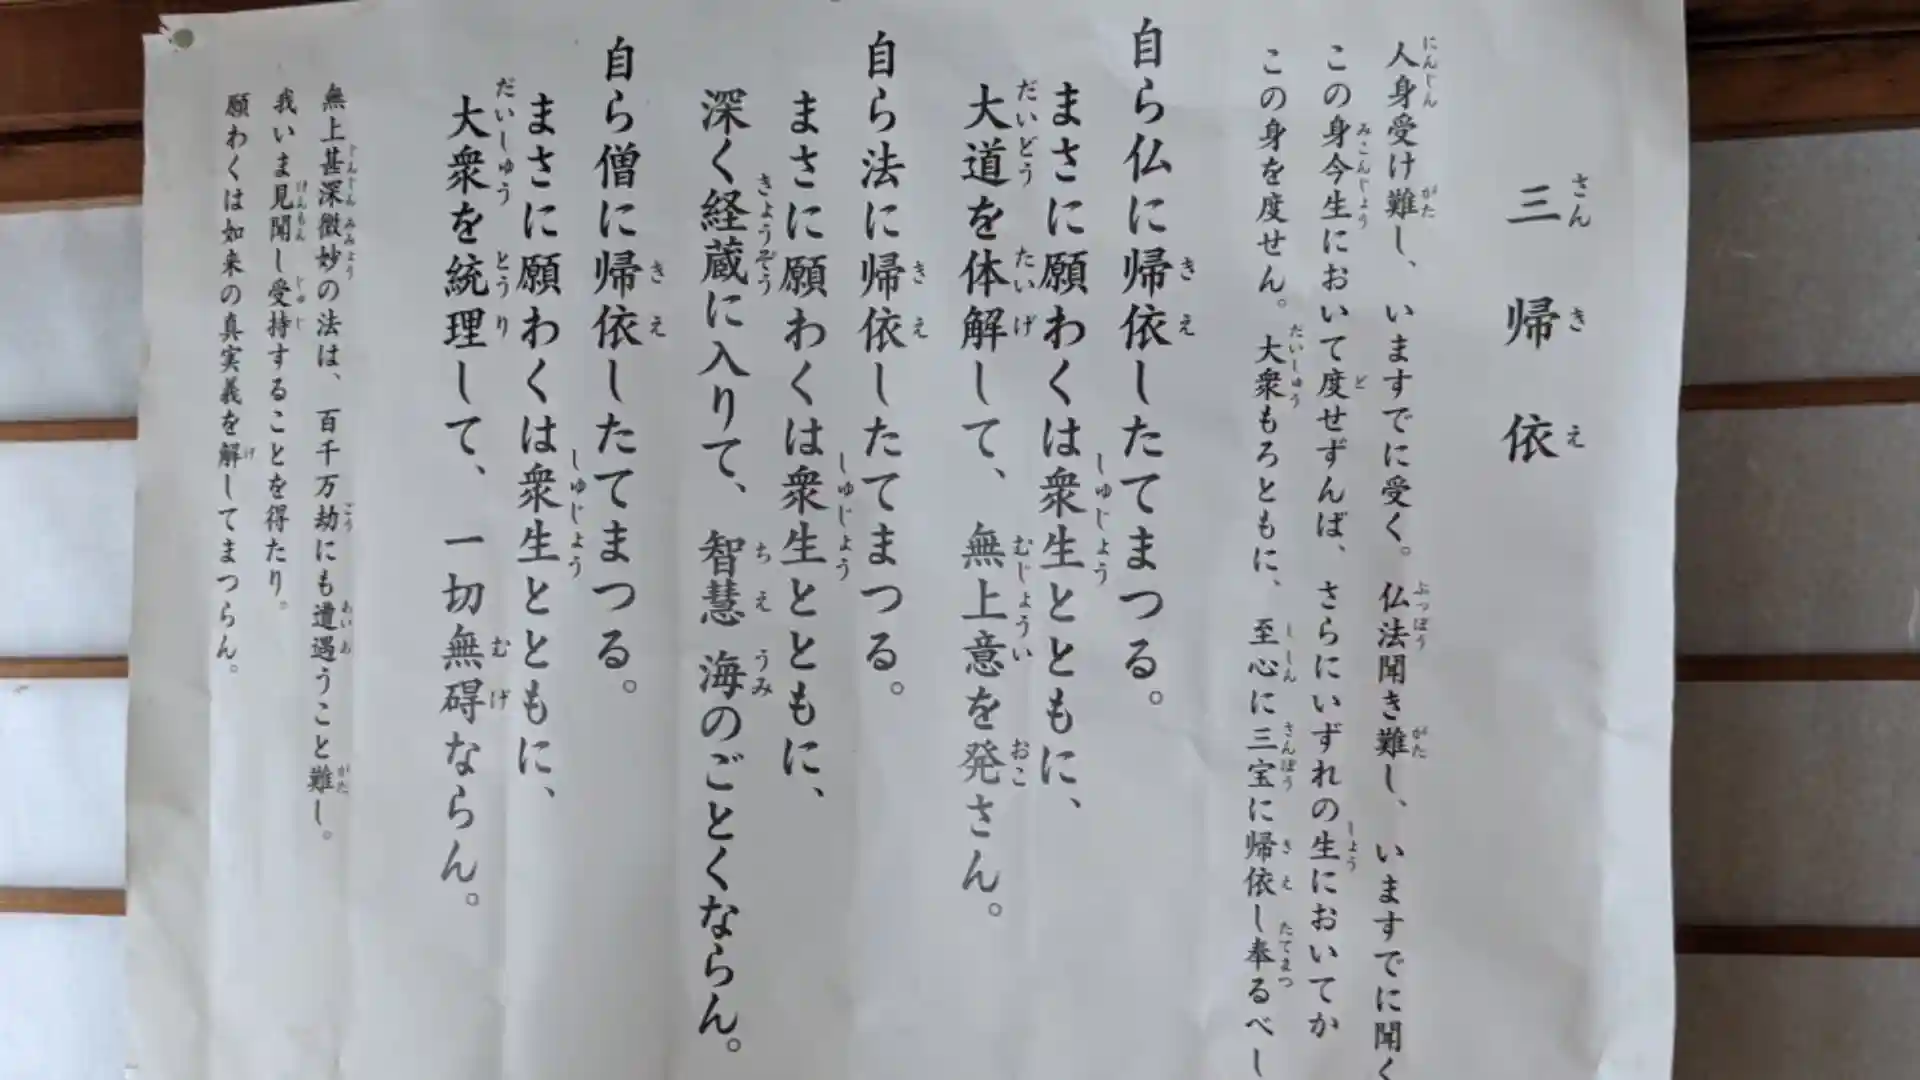 三帰依
人身受け難し、いますでに受く。仏法聞き難し、いますでに聞く
この身今生において度せずんば、さらにいずれの生においてか
この身を度せん。大衆もろともに、至心に三宝に帰依し奉るべし
自ら仏に帰依したてまつる。
まさに願わくは衆生とともに、
大道を体解して、無上意を発さん。
自ら法に帰依したてまつる。
まさに願わくは衆生とともに、
深く経蔵に入りて、智慧海のごとくならん。
自ら僧に帰依したてまつる。
まさに願わくは衆生とともに、
大衆を統理して、一切無碍ならん。
無上甚深微妙の法は、百千万劫にも遭遇うこと難し。
我いま見聞し受持することを得たり。
願わくは如来の真実義を解してまつらん。